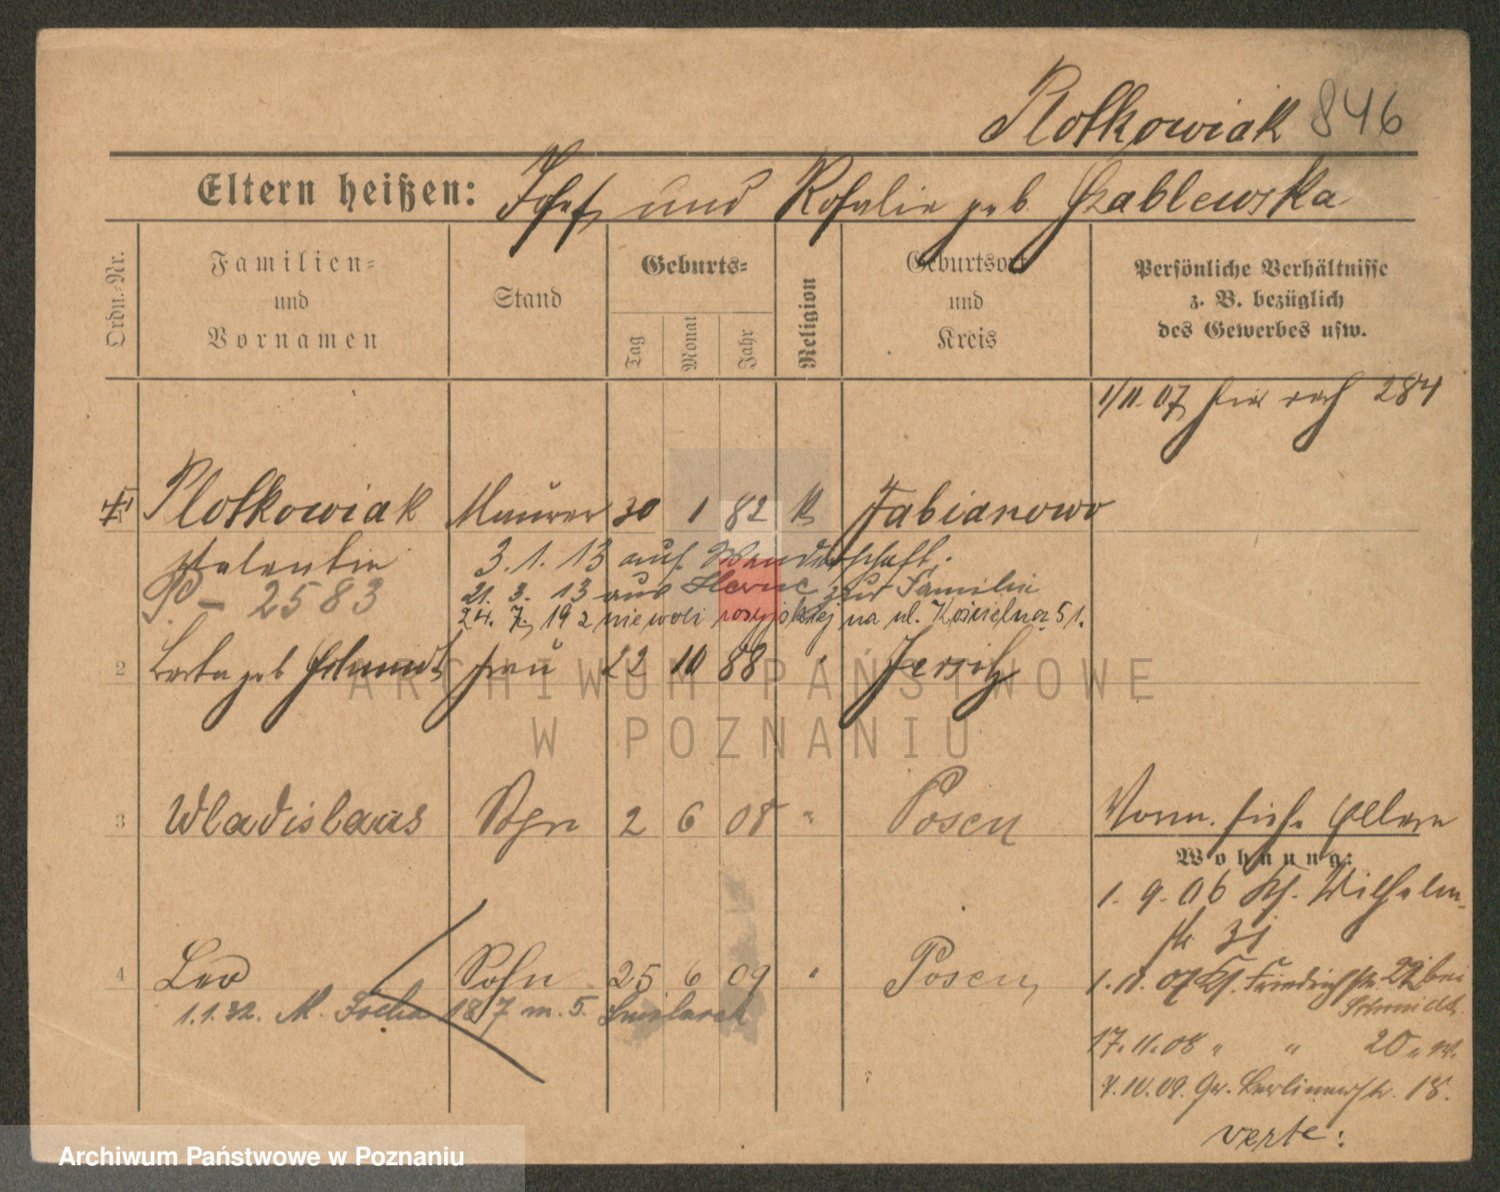 Plotkowiak 846
Eltern heißen: Josef und Rosalie geb. Szablewska
Ordn.-Nr.
Familien-
und
Vornamen
Stand
Geburts-
Tag
Monat
Jahr
Religion
Geburtsort
und
Kreis
Persönliche Verhältnisse
z. B. bezüglich
des Gewerbes usw.
1/11. 07 hier nach 284
Plotkowiak Maurer 30 1 82 K Fabianowo
Valentin 3. 1. 13 auf Wanderschaft.
P - 2583 21. 3. 13 aus Herne zur Familie
24. 7. 192 niewoli rosyjskiej na ul. Kościelna 51.
2 geb. Schmidt Frau 22 10 88 " Jersitz
3 Wladislaus Sohn 2 6 08 " Posen
Vorm. siehe Eltern
Wohnung:
1. 9. 06 Kf. Wilhelm-
str 31
4 Leo Sohn 25 6 09 " Posen
1. 11. 07 Kf. Friedrichstr. 22 bei
Schmidt
1.1.32. M. Focha 187 m. 5.
17. 11. 08 " " 20
4. 10. 09. Gr. Berlinerstr. 18.
verte:
ARCHIWUM PAŃSTWOWE
W POZNANIU
Archiwum Państwowe w Poznaniu